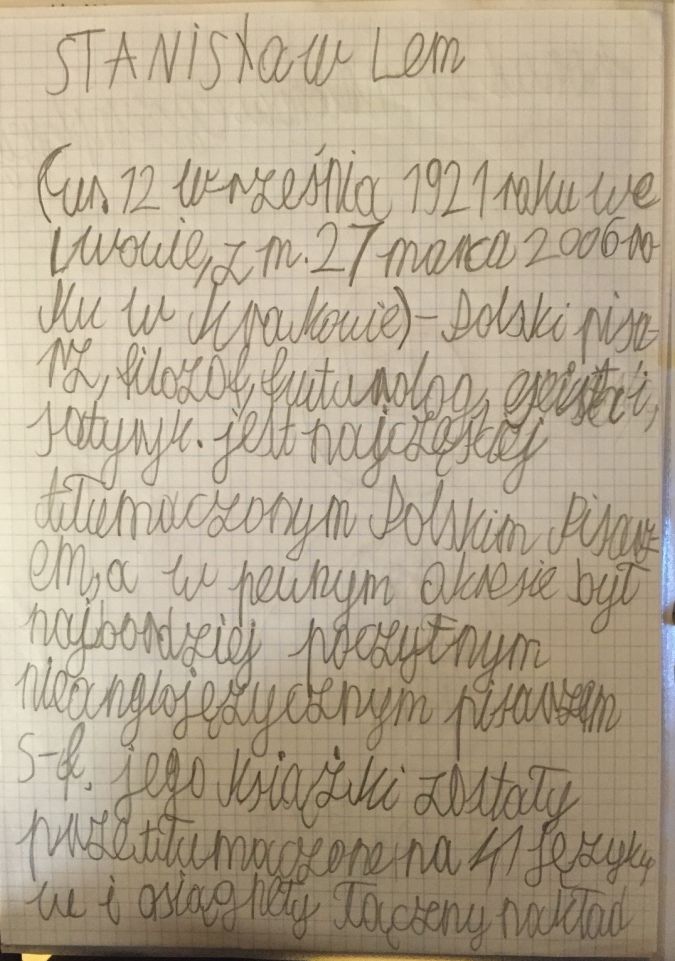 STANISław Lem
(ur. 12 września 1921 roku we
Lwowie, zm. 27 marca 2006 ro-
ku w Krakowie) - Polski pisa-
rz, filozof, futurolog, eseista i,
satyryk. jest najczęściej
tłumaczonym Polskim Pisarz-
em, a w pewnym okresie był
najbardziej poczytnym
nieanglojęzycznym pisarzem
S-f. jego książki zostały
przetłumaczone na 41 języków
we i osiągnęły łączny nakład